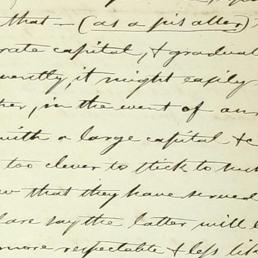 that - (as a pis aller)
rate capital, & gradual
uently, it might easily
her, in the event of an
with a large capital & c
too clever to stick to
w that they have served
dare say the latter will b
more respectable & less li